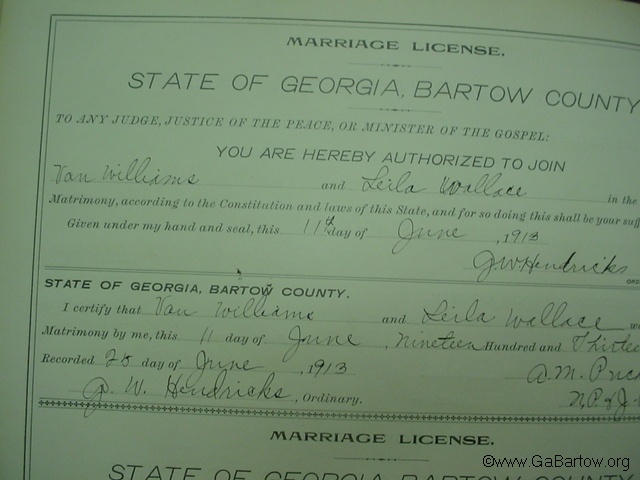 MARRIAGE LICENSE.
STATE OF GEORGIA, BARTOW COUNTY
TO ANY JUDGE, JUSTICE OF THE PEACE, OR MINISTER OF THE GOSPEL:
YOU ARE HEREBY AUTHORIZED TO JOIN
Van Williams and Leila Wallace in the
Matrimony, according to the Constitution and laws of this State, and for so doing this shall be your suff
Given under my hand and seal, this 11th day of June, 1913
G W Hendricks
ORD
STATE OF GEORGIA, BARTOW COUNTY.
I certify that Van Williams and Leila Wallace we
Matrimony by me, this 11 day of June, Nineteen Hundred and Thirtee
Recorded 25 day of June, 1913 A. M. Puck
G. W. Hendricks, Ordinary. N, P & J.
MARRIAGE LICENSE.
STATE OF GEORGIA, BARTOW COUNTY
©www.GaBartow.org